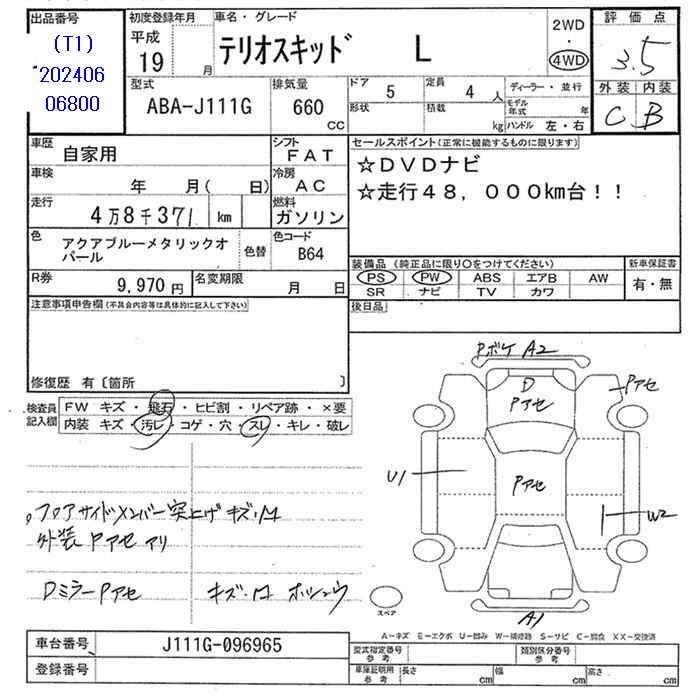 出品番号
(T1)
202406
06800
初度登録年月
平成
19 月
車名・グレード
テリオスキッド L
2WD
・
4WD
評価点
3.5
外装 内装
C B
型式
ABA-J111G
排気量
660
CC
ドア 5
形状
定員 4 人
積載 kg
ディーラー・並行
モデル年式 年
ハンドル 左・右
車歴
自家用
シフト
FAT
車検
年 月( 日)
冷房
AC
走行
4万8千371 km
燃料
ガソリン
色
アクアブルーメタリックオパール
色替
色コード
B64
R券
9,970円
名変期限
月 日
セールスポイント(正常に機能するものに限ります)
☆DVDナビ
☆走行48,000km台!!
装備品 (純正品に限り○をつけてください)
PS PW ABS エアB AW
SR ナビ TV カワ
新車保証書
有・無
後日品
注意事項申告欄(不具合内容等は具体的に記入して下さい)
修復歴 有〔箇所 〕
検査員記入欄
FW キズ・飛石・ヒビ割・リペア跡・×要
内装 キズ・汚レ・コゲ・穴・スレ・キレ・破レ
フロアサイドメンバー突上げキズ・凹
外装 Pアセ アリ
DミラーPアセ キズ・凹 ホシュウ
Pボケ A2
D
Pアセ
Pアセ
U1
Pアセ
W2
A1
スペア
A-キズ E-エクボ U-凹み W-補修跡 S-サビ C-腐食 XX-交換済
車台番号
J111G-096965
登録番号
型式指定番号
参考
類別区分番号
参考
車庫証明用
参考
長さ cm
幅 cm
高さ cm